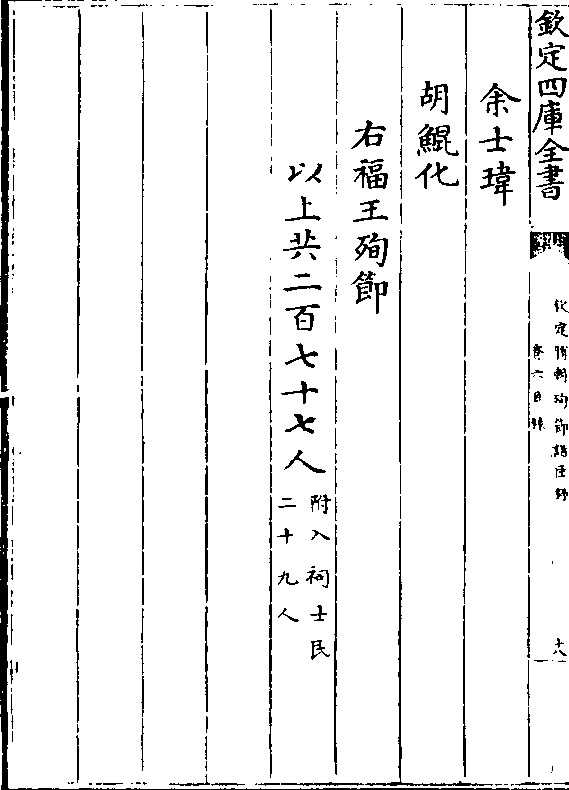 欽定四庫全書
欽定勝朝殉節諸臣錄
卷六目錄
十八
余士瑋
胡鯤化
右福王殉節
以上共二百七十七人
附入祠士民
二十九人